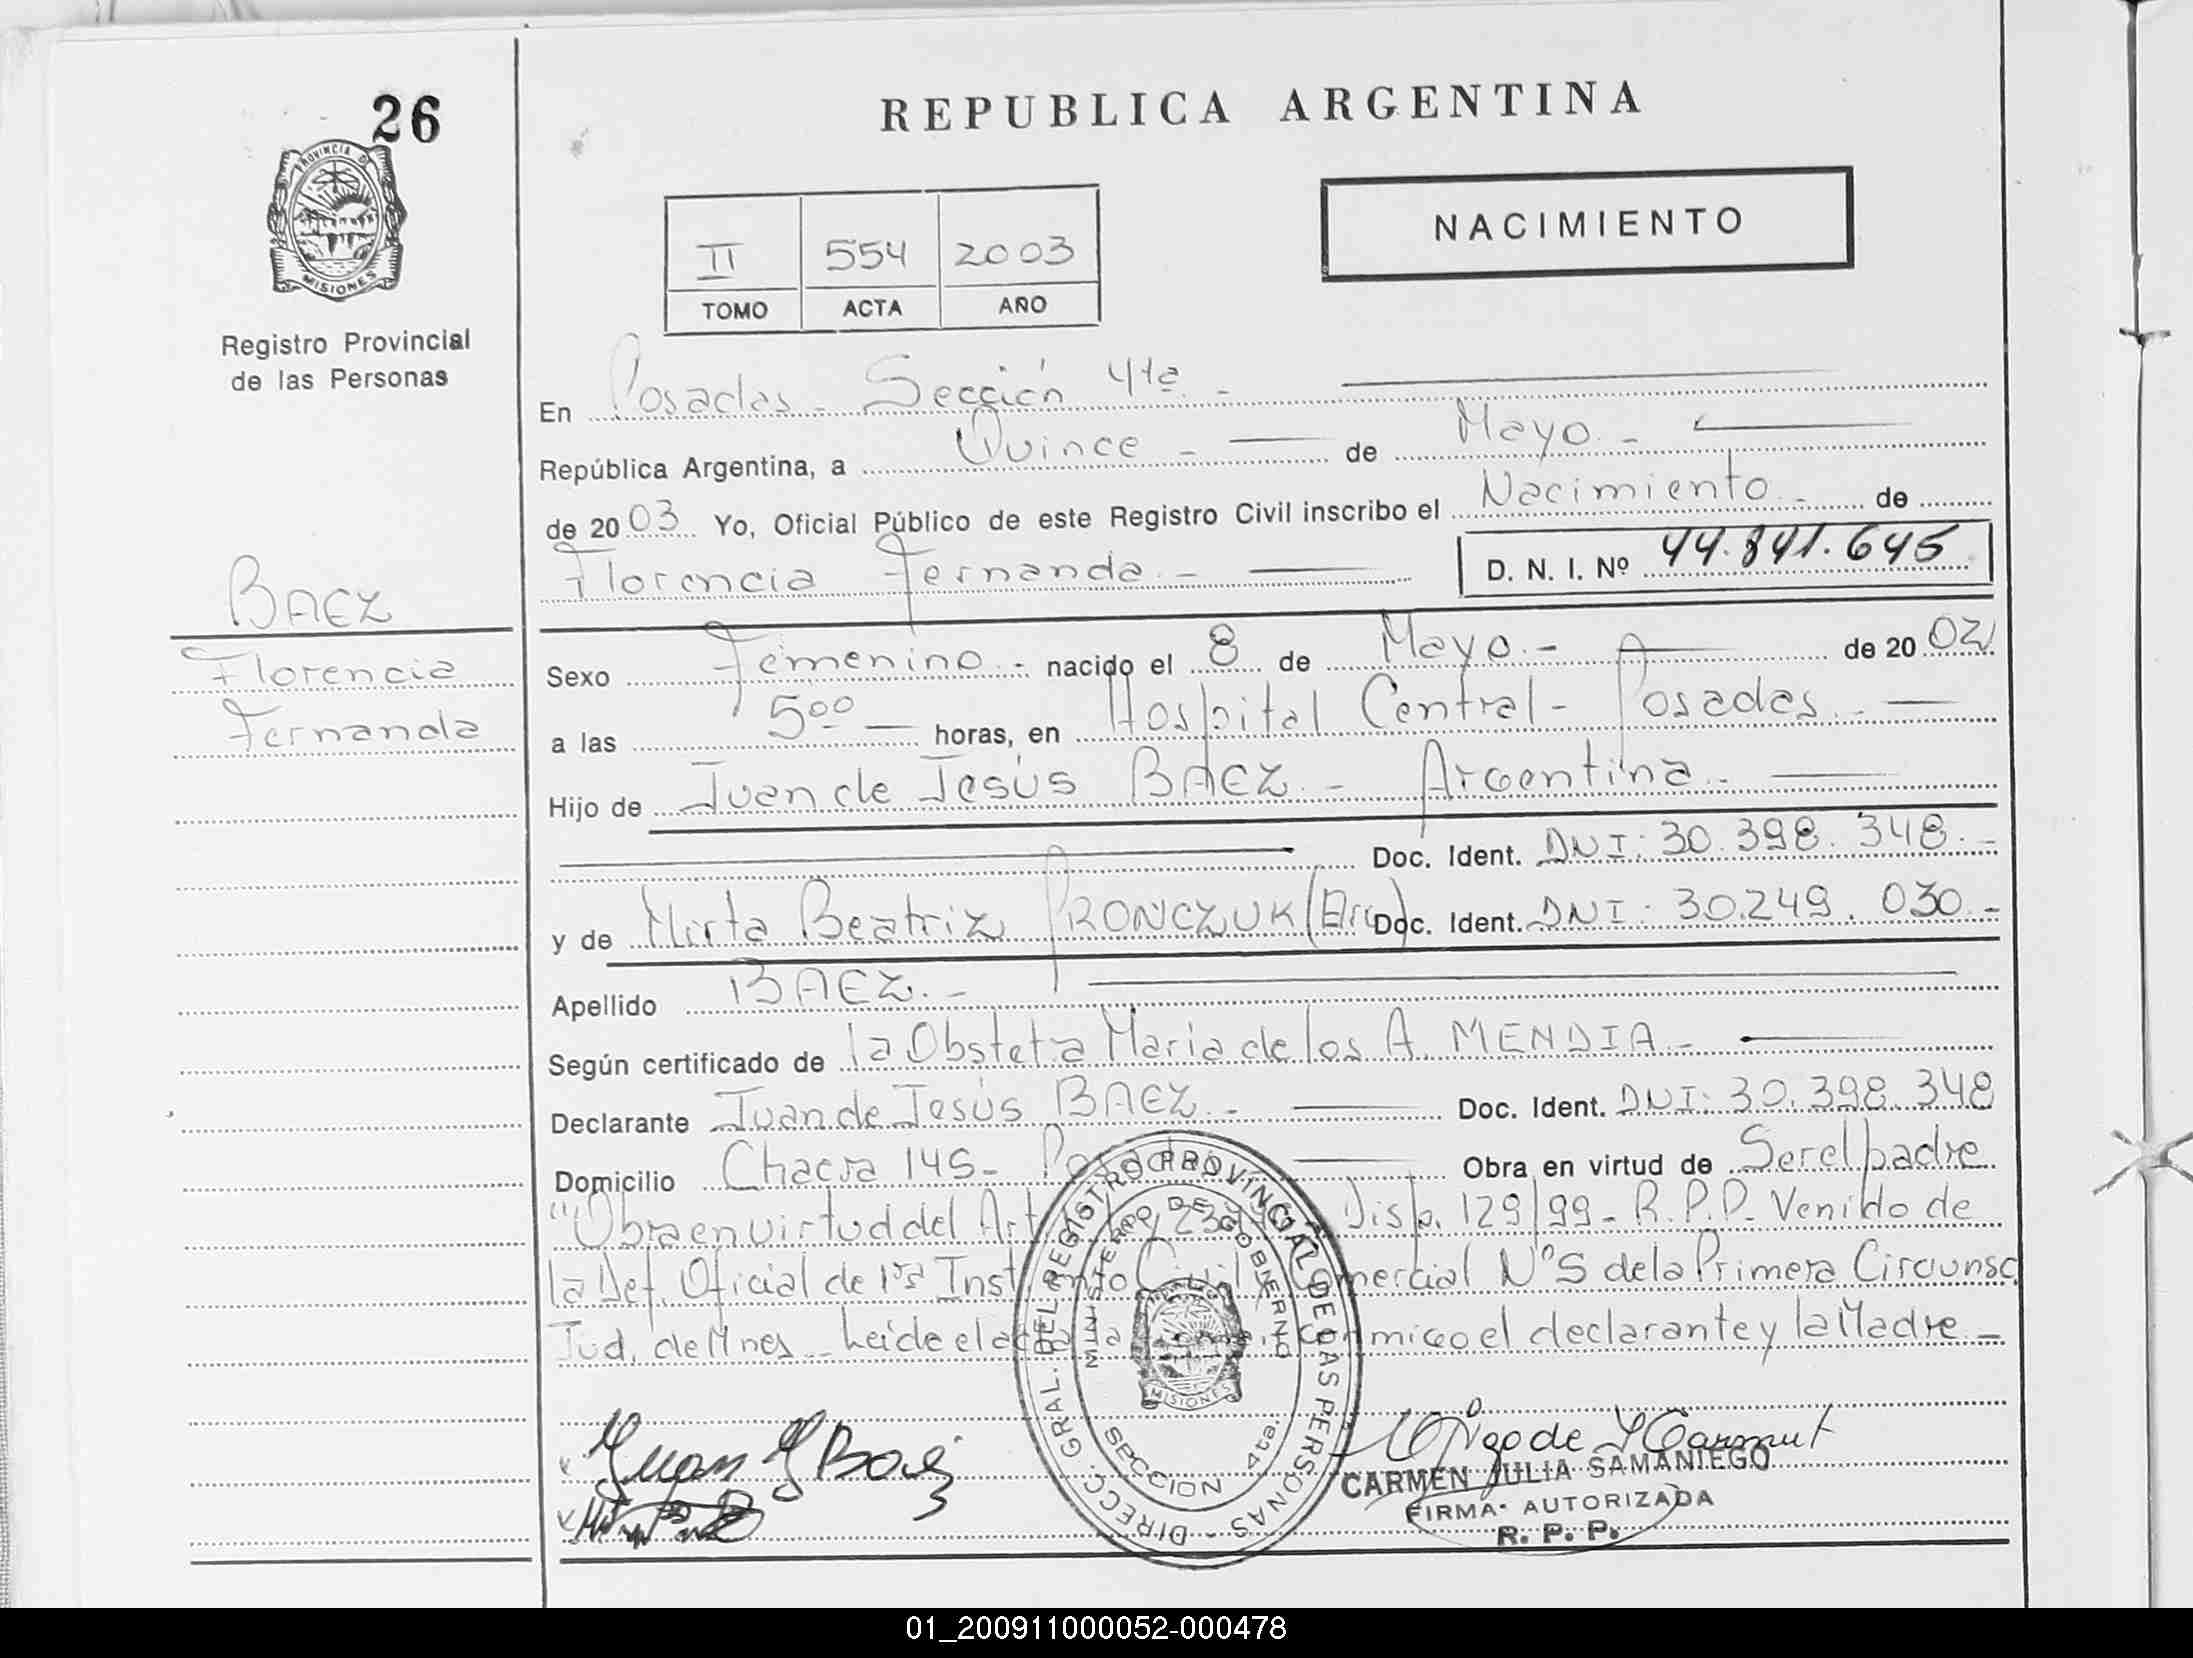 26
PROVINCIA D
MISIONES
Registro Provincial
de las Personas
BAEZ
Florencia
Fernanda
REPUBLICA ARGENTINA
NACIMIENTO
II 554 2003
TOMO ACTA AÑO
En Posadas - Sección 4ta. -
República Argentina, a Quince - de Mayo. -
de 2003 Yo, Oficial Público de este Registro Civil inscribo el Nacimiento. - de
Florencia Fernanda. - D. N. I. Nº 44.841.645
Sexo Femenino. - nacido el 8 de Mayo. - de 2002
a las 5 00 horas, en Hospital Central - Posadas. -
Hijo de Juan de Jesús BAEZ. - Argentina. -
Doc. Ident. DNI: 30.398.348. -
y de Mirta Beatriz PRONCZUK (Arg) Doc. Ident. DNI: 30.249.030. -
Apellido BAEZ. -
Según certificado de la Obstetra Maria de los A. MENDIA. -
Declarante Juan de Jesús BAEZ. - Doc. Ident. DNI: 30.398.348
Domicilio Chacra 145 - Posadas Obra en virtud de Ser el padre
"Obra en virtud del Art Disp. 129/99 - R.P.P. Venido de
la Def. Oficial de 1ra Inst Civil Comercial Nº 5 de la Primera Circunsc
Jud. de Mnes. - Leída el acta la conmigo el declarante y la Madre. -
DIRECC. GRAL. DEL REGISTRO PROVINCIAL DE LAS PERSONAS -
MINISTERIO DE GOBIERNO
MISIONES
SECCION 4ta.
Juan J Baez
CARMEN JULIA SAMANIEGO
FIRMA AUTORIZADA
R. P. P.
01_200911000052-000478